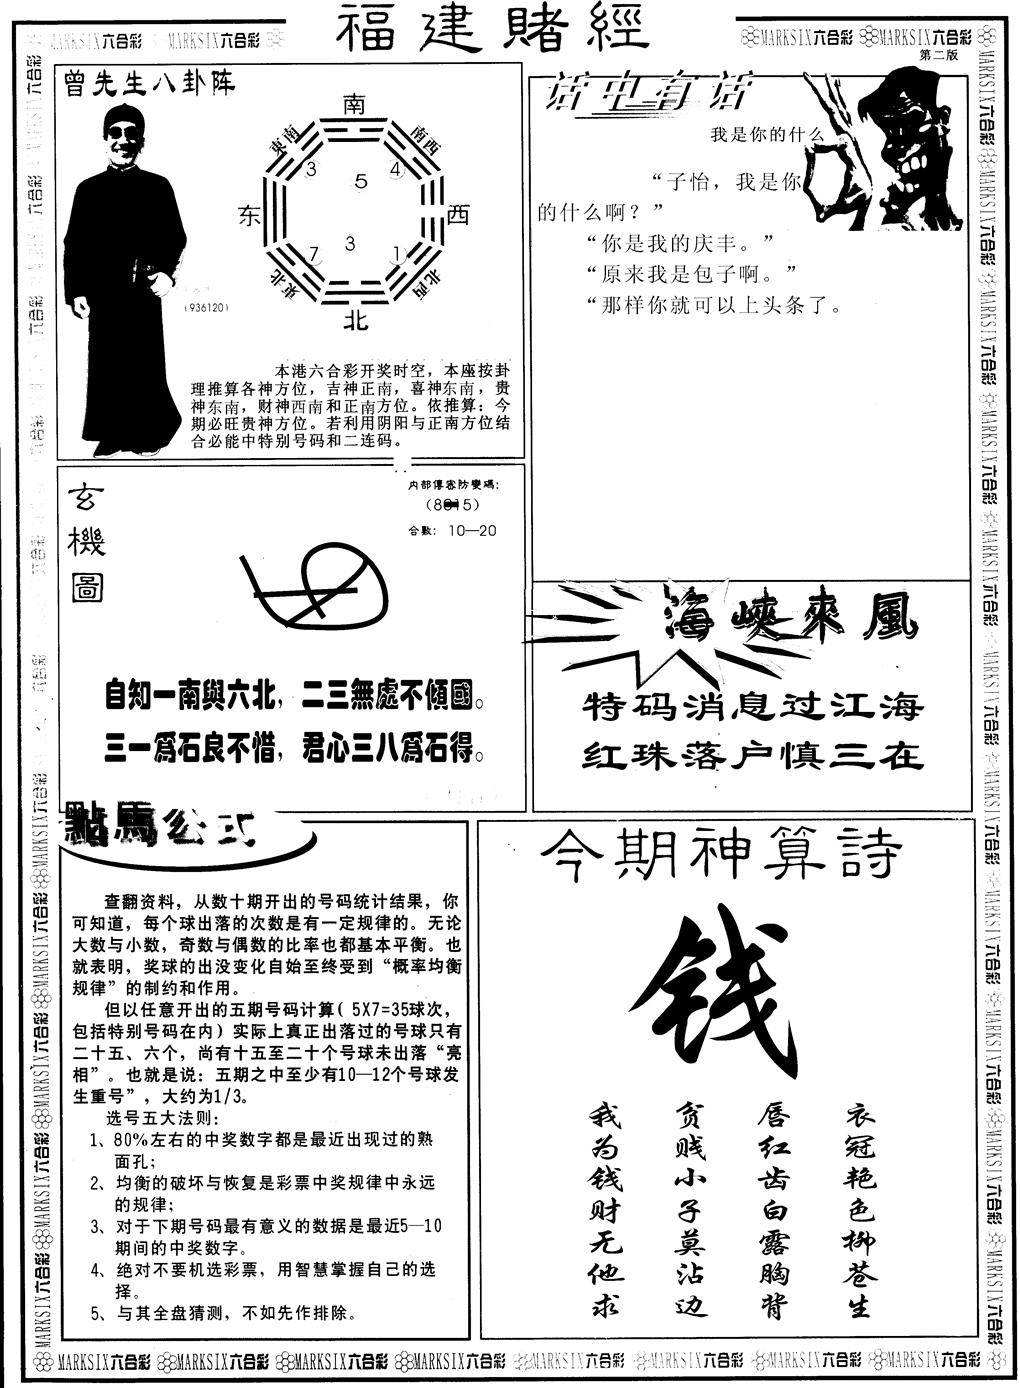 福建賭經
第二版
MARKSIX六合彩 MARKSIX六合彩 MARKSIX六合彩 MARKSIX六合彩
曾先生八卦阵
南
東南
南西
3
4
5
东
西
3
7
1
東北
北西
北
(936120)
本港六合彩开奖时空，本座按卦
理推算各神方位，吉神正南，喜神东南，贵
神东南，财神西南和正南方位。依推算：今
期必旺贵神方位。若利用阴阳与正南方位结
合必能中特别号码和二连码。
话中有话
我是你的什么
“子怡，我是你
的什么啊？”
“你是我的庆丰。”
“原来我是包子啊。”
“那样你就可以上头条了。
玄機圖
内部傳密防變碼：
合數： 10—20
自知一南與六北，二三無處不傾國。
三一爲石良不惜，君心三八爲石得。
海峽來風
特码消息过江海
红珠落户慎三在
點馬公式
查翻资料，从数十期开出的号码统计结果，你
可知道，每个球出落的次数是有一定规律的。无论
大数与小数，奇数与偶数的比率也都基本平衡。也
就表明，奖球的出没变化自始至终受到“概率均衡
规律”的制约和作用。
但以任意开出的五期号码计算( 5X7=35球次，
包括特别号码在内）实际上真正出落过的号球只有
二十五、六个，尚有十五至二十个号球未出落“亮
相”。也就是说：五期之中至少有10—12个号球发
生重号”，大约为1/3。
选号五大法则：
1、80%左右的中奖数字都是最近出现过的熟
面孔；
2、均衡的破坏与恢复是彩票中奖规律中永远
的规律；
3、对于下期号码最有意义的数据是最近5—10
期间的中奖数字。
4、绝对不要机选彩票，用智慧掌握自己的选
择。
5、与其全盘猜测，不如先作排除。
今期神算詩
钱
衣冠艳色柳苍生
唇红齿白露胸背
贫贱小子莫沾边
我为钱财无他求
MARKSIX六合彩 MARKSIX六合彩 MARKSIX六合彩 MARKSIX六合彩 MARKSIX六合彩 MARKSIX六合彩 MARKSIX六合彩 MARKSIX六合彩